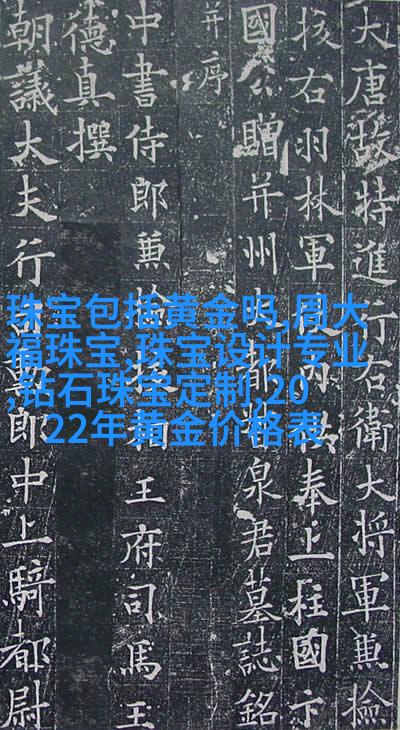 大唐故特進行右衛大將軍兼檢
挍右羽林軍奉上柱國卞
國公贈并州大都督泉君墓誌銘
并序
中書侍郎兼檢挍相王府司馬王
德真撰
朝議大夫行司勳郎中上騎都尉
珠宝包括黄金吗,周大
福珠宝,珠宝设计专业
,钻石珠宝定制,20
22年黄金价格表